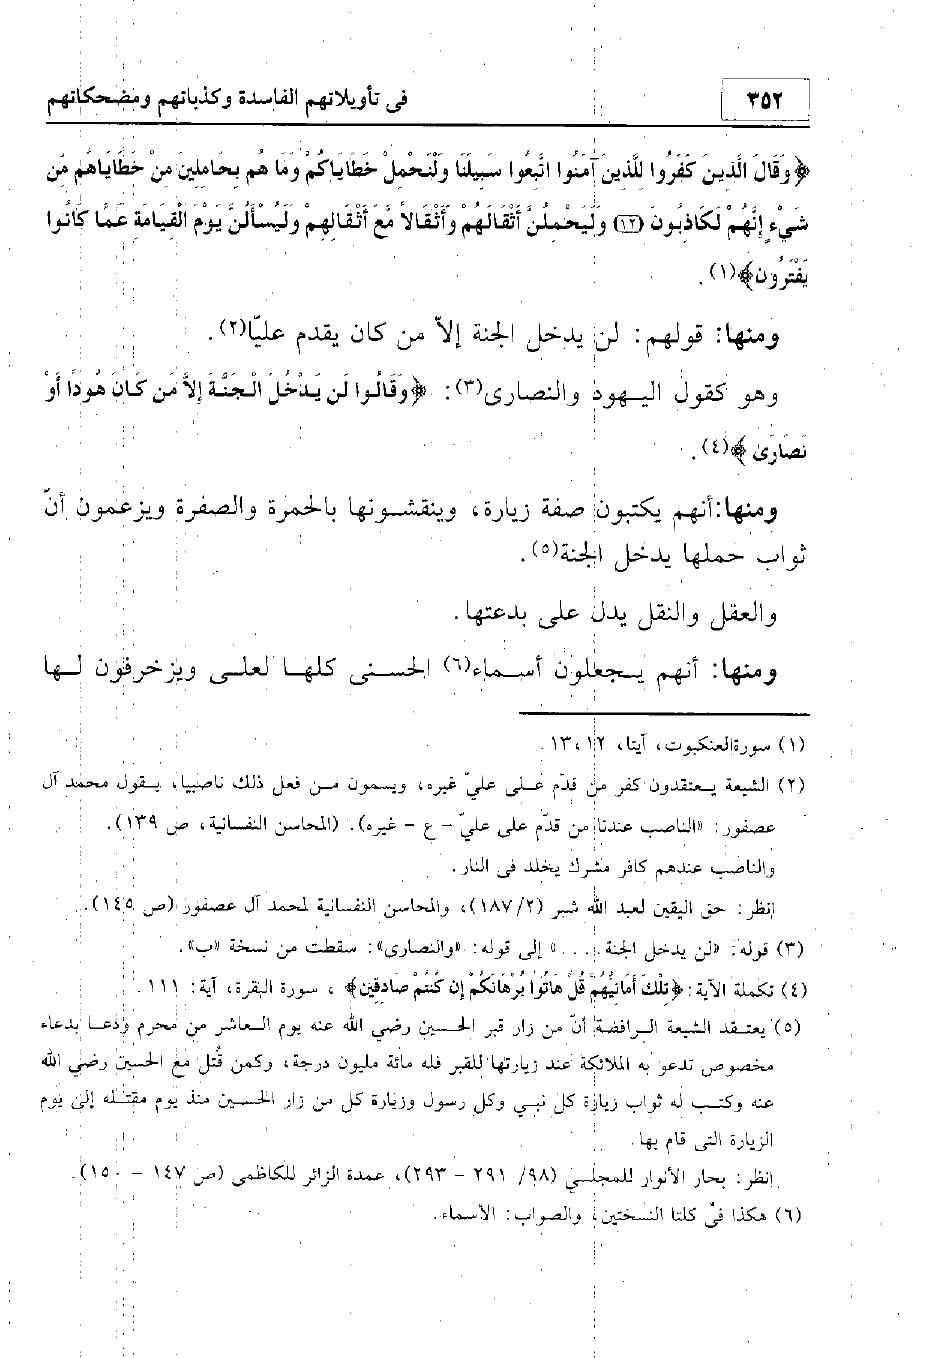 ٣٥٢
فى تأويلاتهم الفاسدة وكذباتهم ومضحكاتهم
﴿وَقَالَ الَّذِينَ كَفَرُوا لِلَّذِينَ آمَنُوا اتَّبِعُوا سَبِيلَنَا وَلْنَحْمِلْ خَطَايَاكُمْ وَمَا هُم بِحَامِلِينَ مِنْ خَطَايَاهُم مِّن
شَيْءٍ إِنَّهُمْ لَكَاذِبُونَ (١٢) وَلَيَحْمِلُنَّ أَثْقَالَهُمْ وَأَثْقَالاً مَّعَ أَثْقَالِهِمْ وَلَيُسْأَلُنَّ يَوْمَ الْقِيَامَةِ عَمَّا كَانُوا
يَفْتَرُونَ﴾(١).
ومنها: قولهم: لن يدخل الجنة إلاّ من كان يقدم عليّا(٢).
وهو كقول اليهود والنصارى(٣): ﴿وَقَالُوا لَن يَدْخُلَ الْجَنَّةَ إِلاَّ مَن كَانَ هُودًا أَوْ
نَصَارَىٰ﴾(٤).
ومنها: أنهم يكتبون صفة زيارة، وينقشونها بالحمرة والصفرة ويزعمون أنّ
ثواب حملها يدخل الجنة(٥).
والعقل والنقل يدل على بدعتها.
ومنها: أنهم يجعلون أسماء(٦) الحسنى كلها لعلى ويزخرفون لها
(١) سورة العنكبوت، آيتا، ١٢، ١٣.
(٢) الشيعة يعتقدون كفر من قدّم على عليّ غيره، ويسمون من فعل ذلك ناصبيا، يقول محمد آل
عصفور: «الناصب عندنا من قدّم على عليّ - ع - غيره). (المحاسن النفسانية، ص ١٣٩).
والناصب عندهم كافر مشرك يخلد فى النار.
انظر: حق اليقين لعبد الله شبر (١٨٧/٢)، والمحاسن النفسانية لمحمد آل عصفور (ص ١٤٥).
(٣) قوله: «لن يدخل الجنة . . . » إلى قوله: «والنصارى»: سقطت من نسخة «ب».
(٤) تكملة الآية: ﴿تِلْكَ أَمَانِيُّهُمْ قُلْ هَاتُوا بُرْهَانَكُمْ إِن كُنتُمْ صَادِقِينَ﴾، سورة البقرة، آية: ١١١.
(٥) يعتقد الشيعة الرافضة أنّ من زار قبر الحسين رضي الله عنه يوم العاشر من محرم ودعا بدعاء
مخصوص تدعو به الملائكة عند زيارتها للقبر فله مائة مليون درجة، وكمن قُتل مع الحسين رضي الله
عنه وكتب له ثواب زيارة كل نبي وكل رسول وزيارة كل من زار الحسين منذ يوم مقتله إلى يوم
الزيارة التى قام بها.
انظر: بحار الأنوار للمجلسي (٩٨/ ٢٩١ - ٢٩٣)، عمدة الزائر للكاظمى (ص ١٤٧ - ١٥٠).
(٦) هكذا فى كلتا النسختين، والصواب: الأسماء.